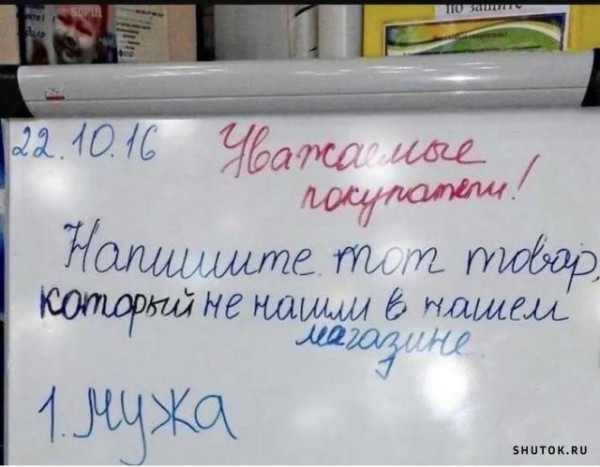 SOPUL
по защите
22.10.16
Уважаемые
покупатели!
Напишите тот товар,
который не нашли в нашем
магазине.
1. Мужа
SHUTOK.RU